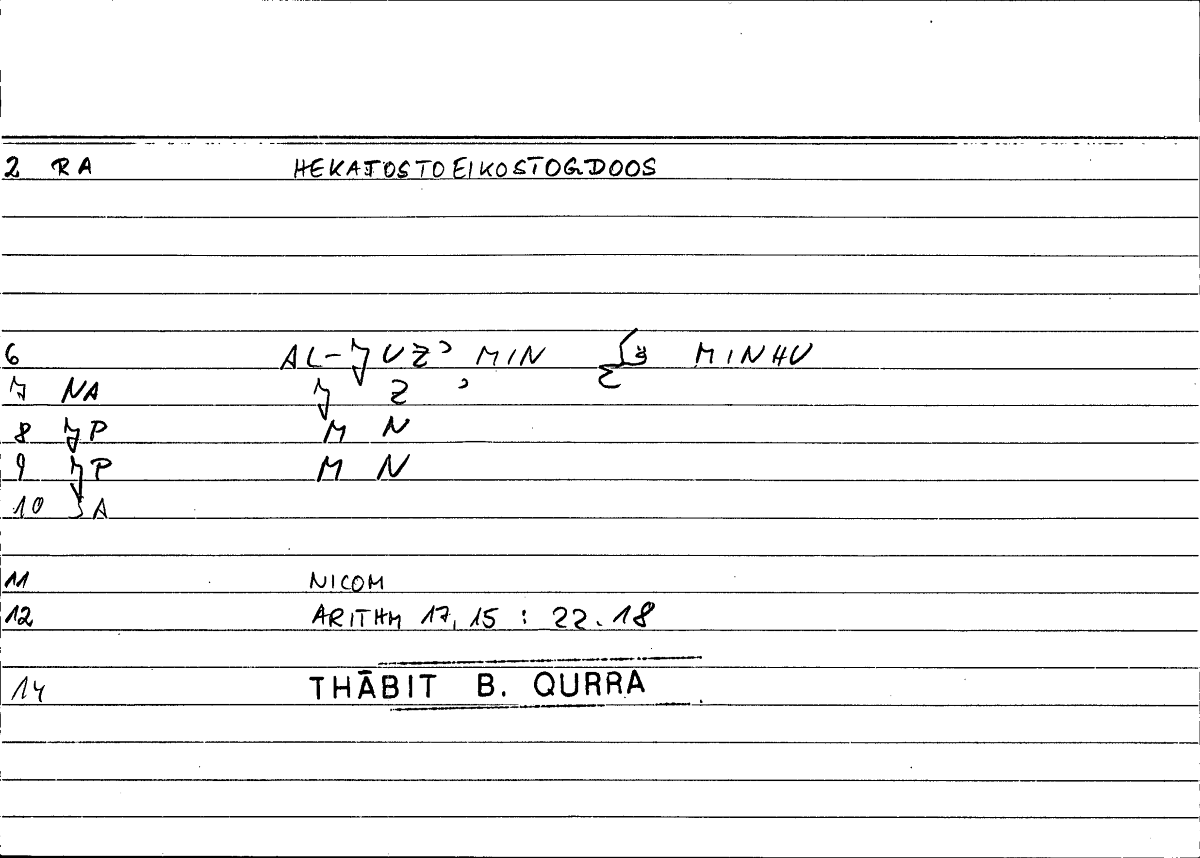 2 RA HEKATOSTOEIKOSTOGDOOS
6 AL-J̌UZʾ MIN MINHU
7 NA J̌ Z ʾ
8 J̌P M N
9 J̌P M N
10 SA
11 NICOM
12 ARITHM 17,15 : 22.18
14 THĀBIT B. QURRA